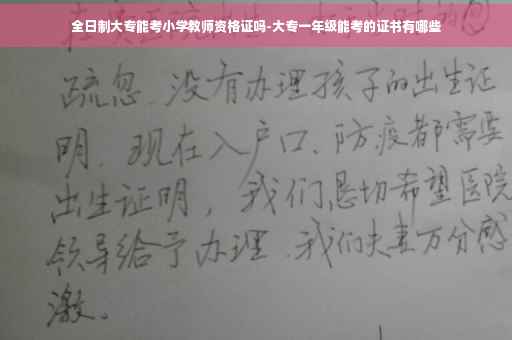 全日制大专能考小学教师资格证吗-大专一年级能考的证书有哪些
疏忽.没有办理孩子的出生证
明.现在入户口、防疫都需要
出生证明，我们恳切希望医院
领导给予办理.我们夫妻万分感
激。